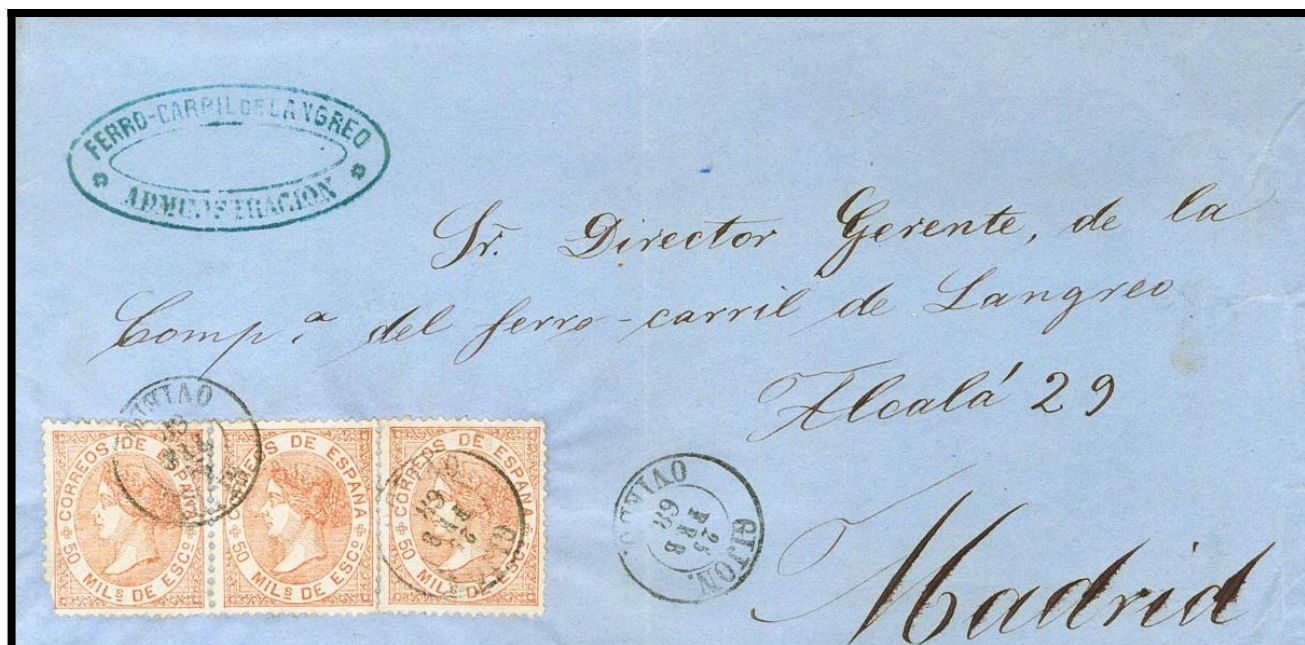 FERRO-CARRIL DE LANGREO
ADMINISTRACION
Sr. Director Gerente, de la
Comp.ª del ferro-carril de Langreo
Alcalá 29
Madrid
CORREOS DE ESPAÑA
50 MILS DE ESCO
CORREOS DE ESPAÑA
50 MILS DE ESCO
CORREOS DE ESPAÑA
50 MILS DE ESCO
GIJON.
25
FEB
68
OVIEDO